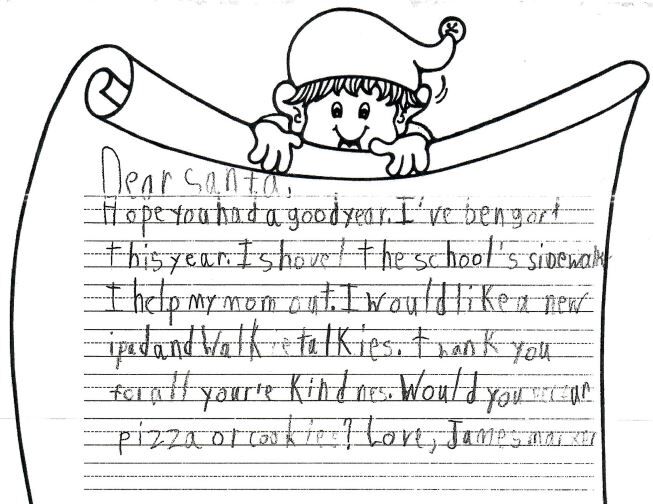 Dear Santa,
Hope you had a good year. I've ben
this year. I shovel the school's sidewalk
I help my mom out. I would like a new
ipad and Walkie talkies. thank you
for all your'e Kindnes. Would you
pizza or cookies? Love, James